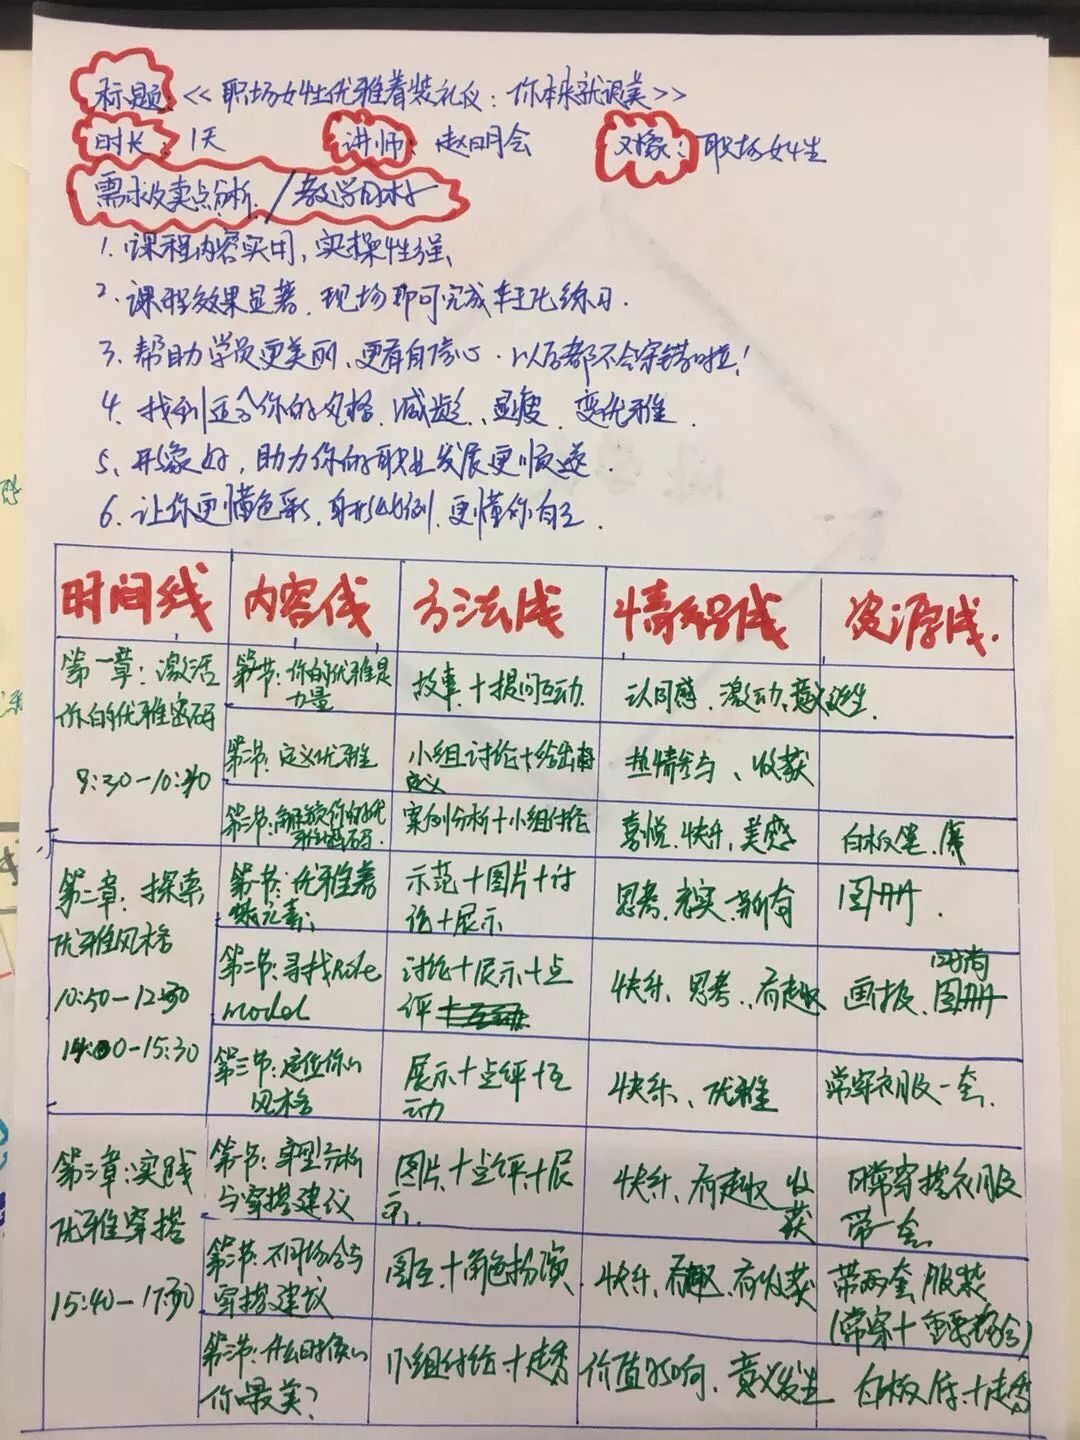 标题:《职场女性优雅着装礼仪:你本来就很美》
时长:1天 讲师:赵明会 对象:职场女生
需求及卖点分析/教学目标
1、课程内容实用,实操性强、
2、课程效果显著、现场即可完成转化练习.
3、帮助学员更美丽、更有自信心、以后都不会穿错啦!
4、找到适合你的风格、减龄、显瘦、变优雅
5、形象好,助力你的职业发展更顺遂.
6、让你更懂色彩、身形比例、更懂你自己.
时间线 内容线 方法线 情绪线 资源线
第一章:激活
你的优雅密码
9:30-10:40
第一节:你的优雅是
力量
故事+提问互动
认同感、激动、意义近生
第二节:定义优雅
小组讨论+给出
定义
热情参与、收获
第三节:解锁你的优
雅密码
案例分析+小组讨论
喜悦、快乐、美感
白板笔、
第二章:探索
优雅风格
10:50-12:30
14:00-15:30
第一节:优雅着
装元素
示范+图片+讨
论+展示
思考、充实、新奇
图册.
第二节:寻找Role
model
讨论+展示+点
评
快乐、思考、有趣
画报、时尚
图册
第三节:定位你的
风格
展示+点评+互
动
快乐、优雅
常穿衣服一套、
第三章:实践
优雅穿搭
15:40-17:30
第一节:身型分析
与穿搭建议
图片+点评+展
示
快乐、有趣、收
获
日常穿搭衣服
带一套
第二节:不同场合与
穿搭建议
图画+角色扮演
快乐、有趣、有收获
带两套服装
(常穿+重要场合)
第三节:什么时候的
你最美?
小组讨论+走秀
价值影响、意义发生
白板纸+走秀